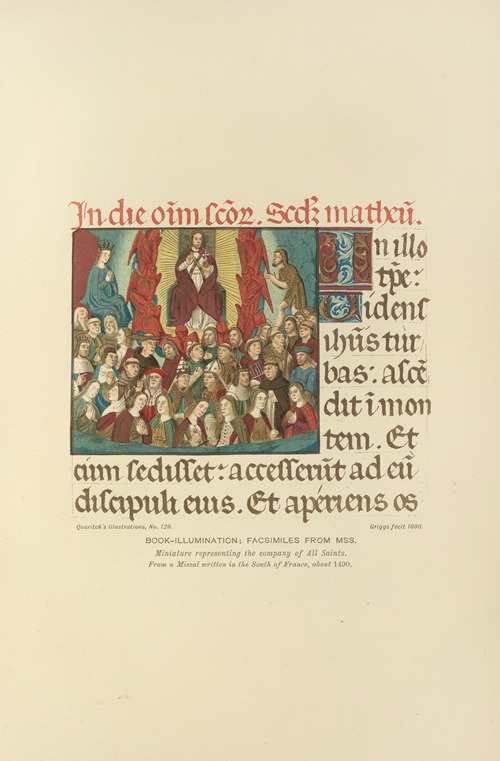 In die oīm scōꝝ. Scd̄z matheū.
In illo
tp̄e:
Uidens
ihūs tur
bas: ascē
dit ī mon
tem. Et
cūm sedisset: accesserūt ad eū
discipuli eius. Et apériens os
Quaritch's illustrations, No. 129.
Griggs fecit 1890.
BOOK–ILLUMINATION; FACSIMILES FROM MSS.
Miniature representing the company of All Saints.
From a Missal written in the South of France, about 1490.